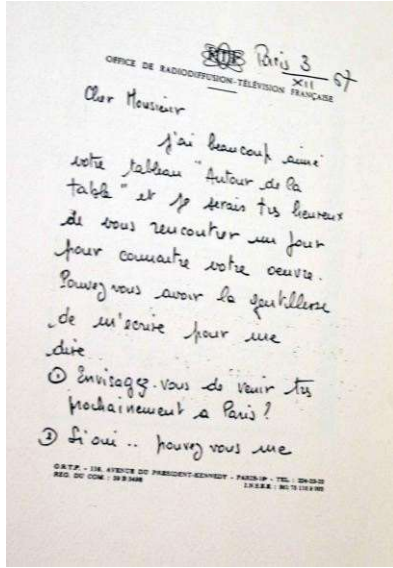 Paris 3
XII 67
OFFICE DE RADIODIFFUSION-TÉLÉVISION FRANÇAISE
Cher Monsieur
J'ai beaucoup aimé
votre tableau "Autour de la
table" et je serais très heureux
de vous rencontrer un jour
pour connaitre votre oeuvre.
Pouvez vous avoir la gentillesse
de m'ecrire pour me
dire
① Envisagez-vous de venir très
prochainement a Paris?
② Si oui .. pouvez vous me
O.R.T.F. - 116, AVENUE DU PRESIDENT-KENNEDY - PARIS-16e - TEL. :
REG. DU COM. :
I.N.S.E.E. :